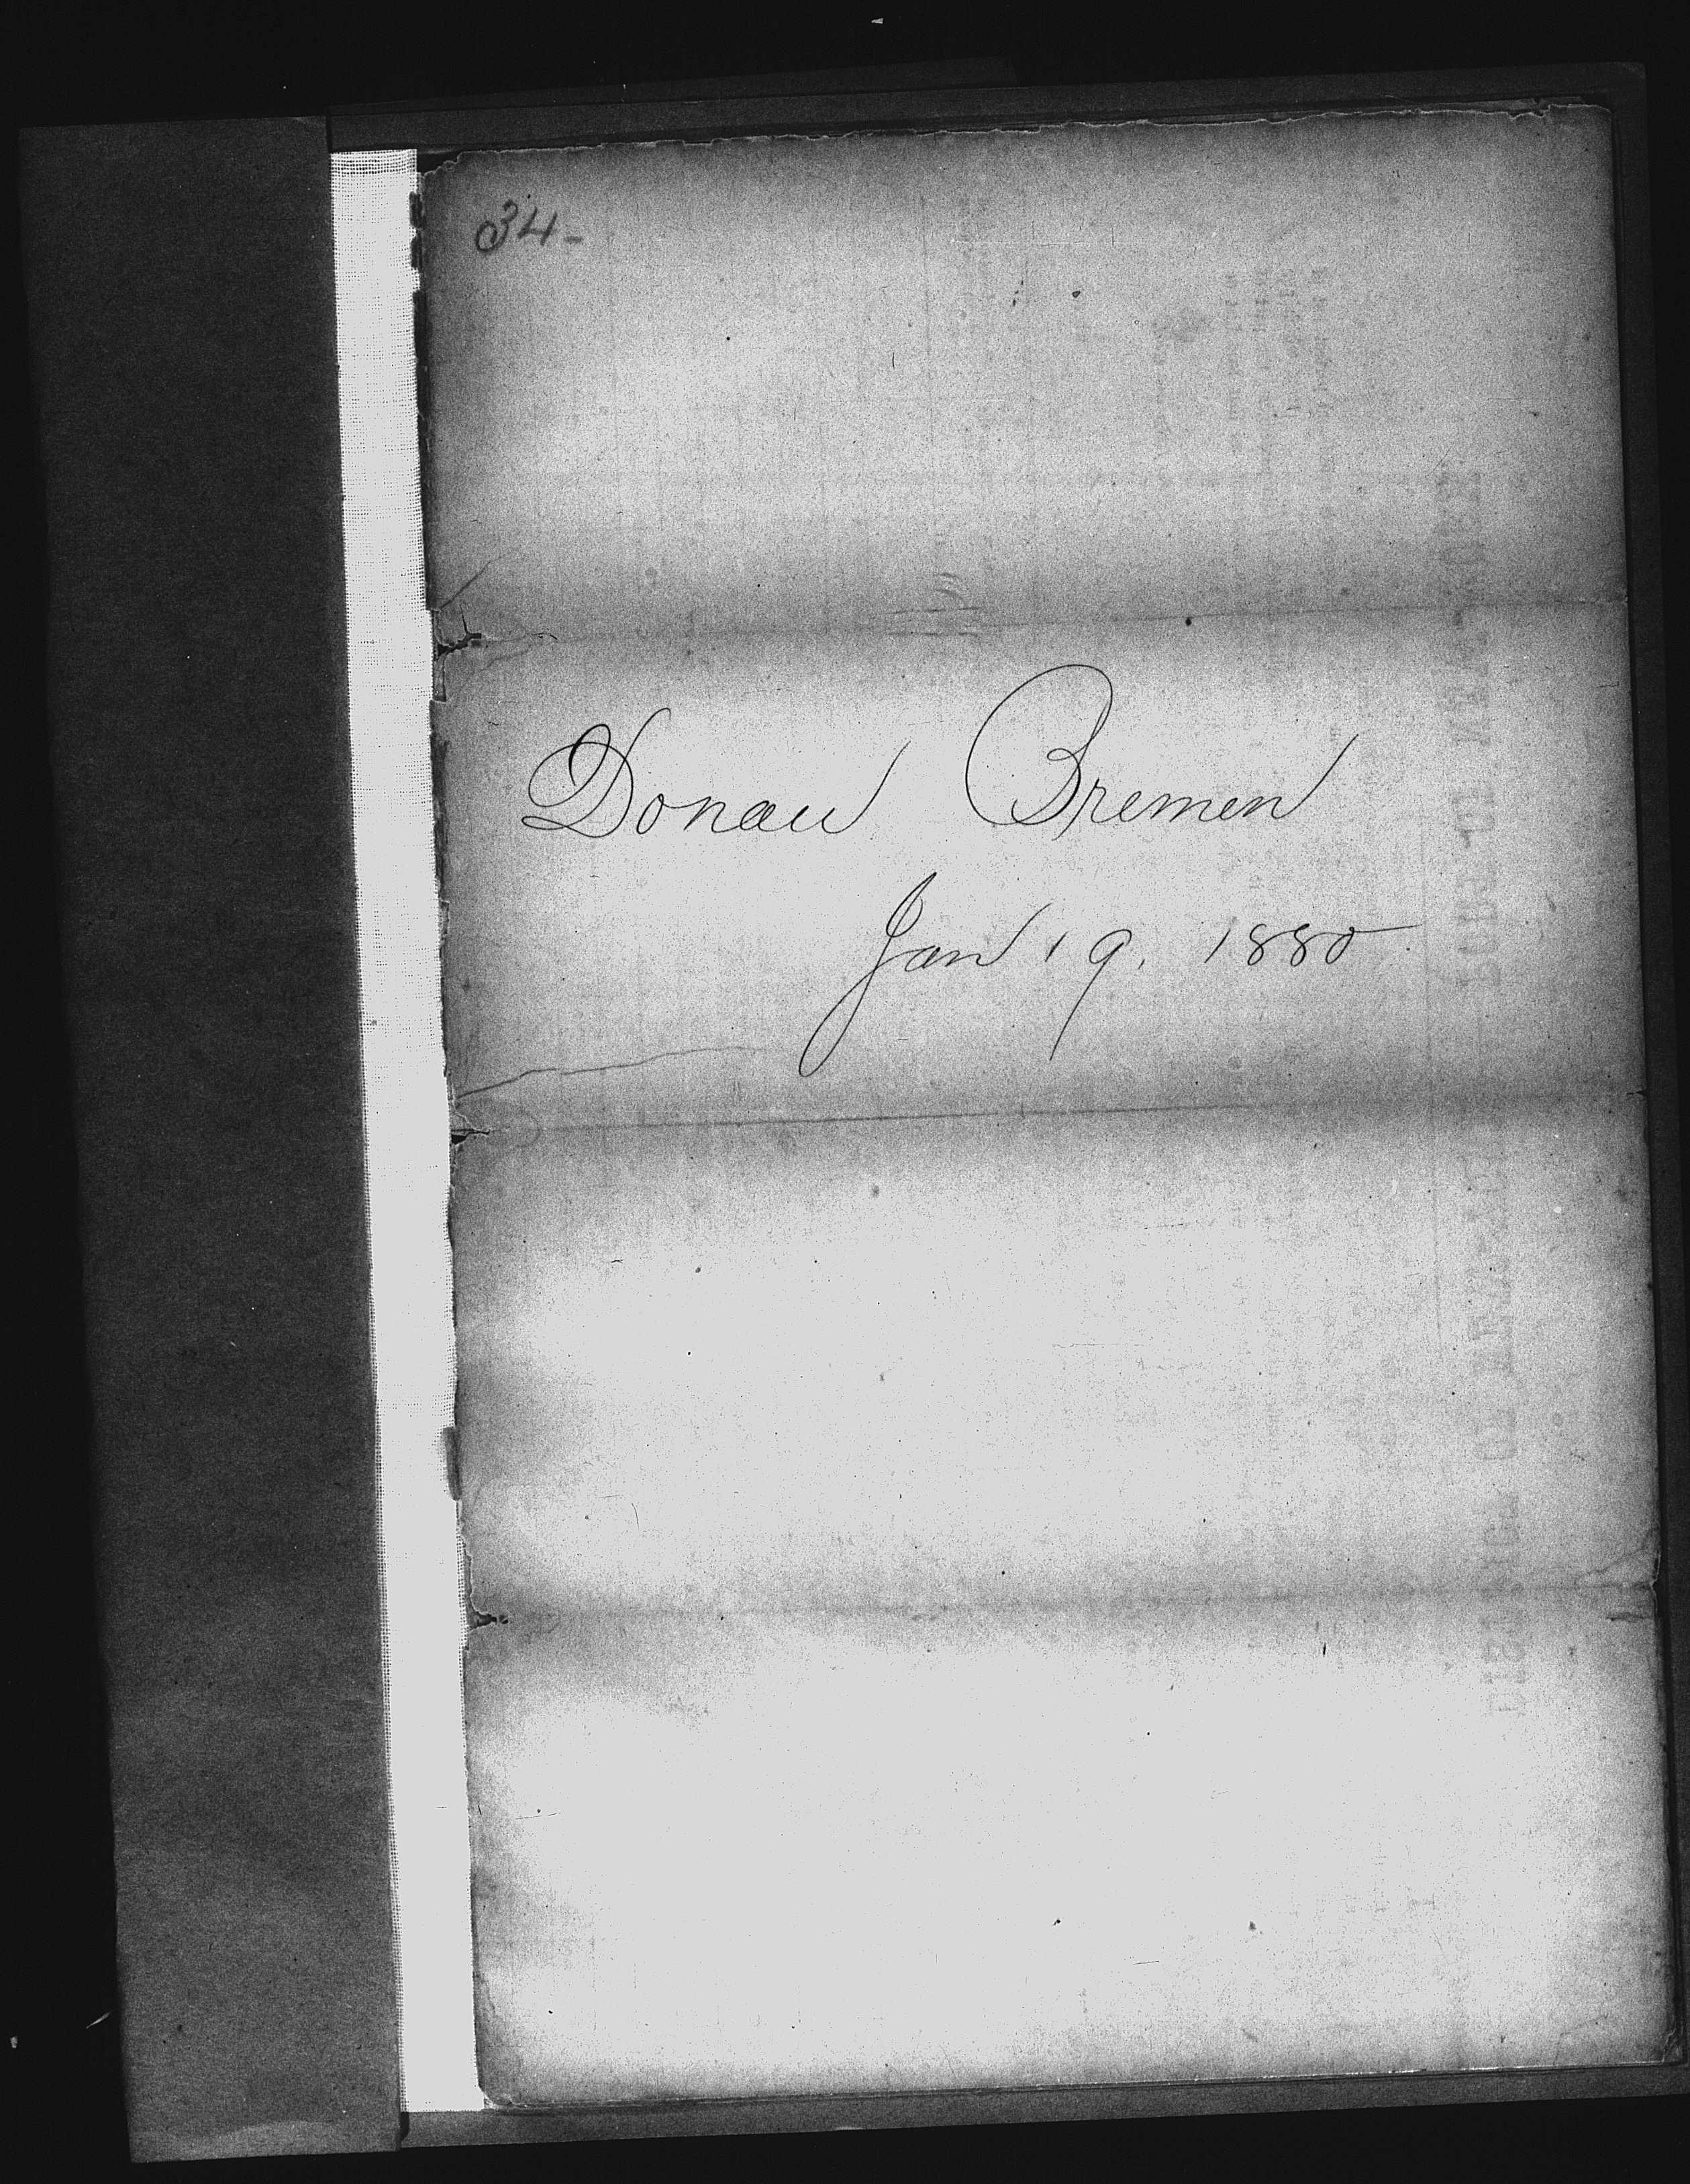 34-
Donau Bremen
Jan 19. 1880